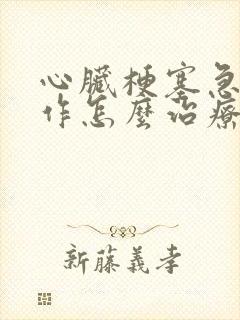 心臟梗塞急
作怎麼治療
新藤義孝